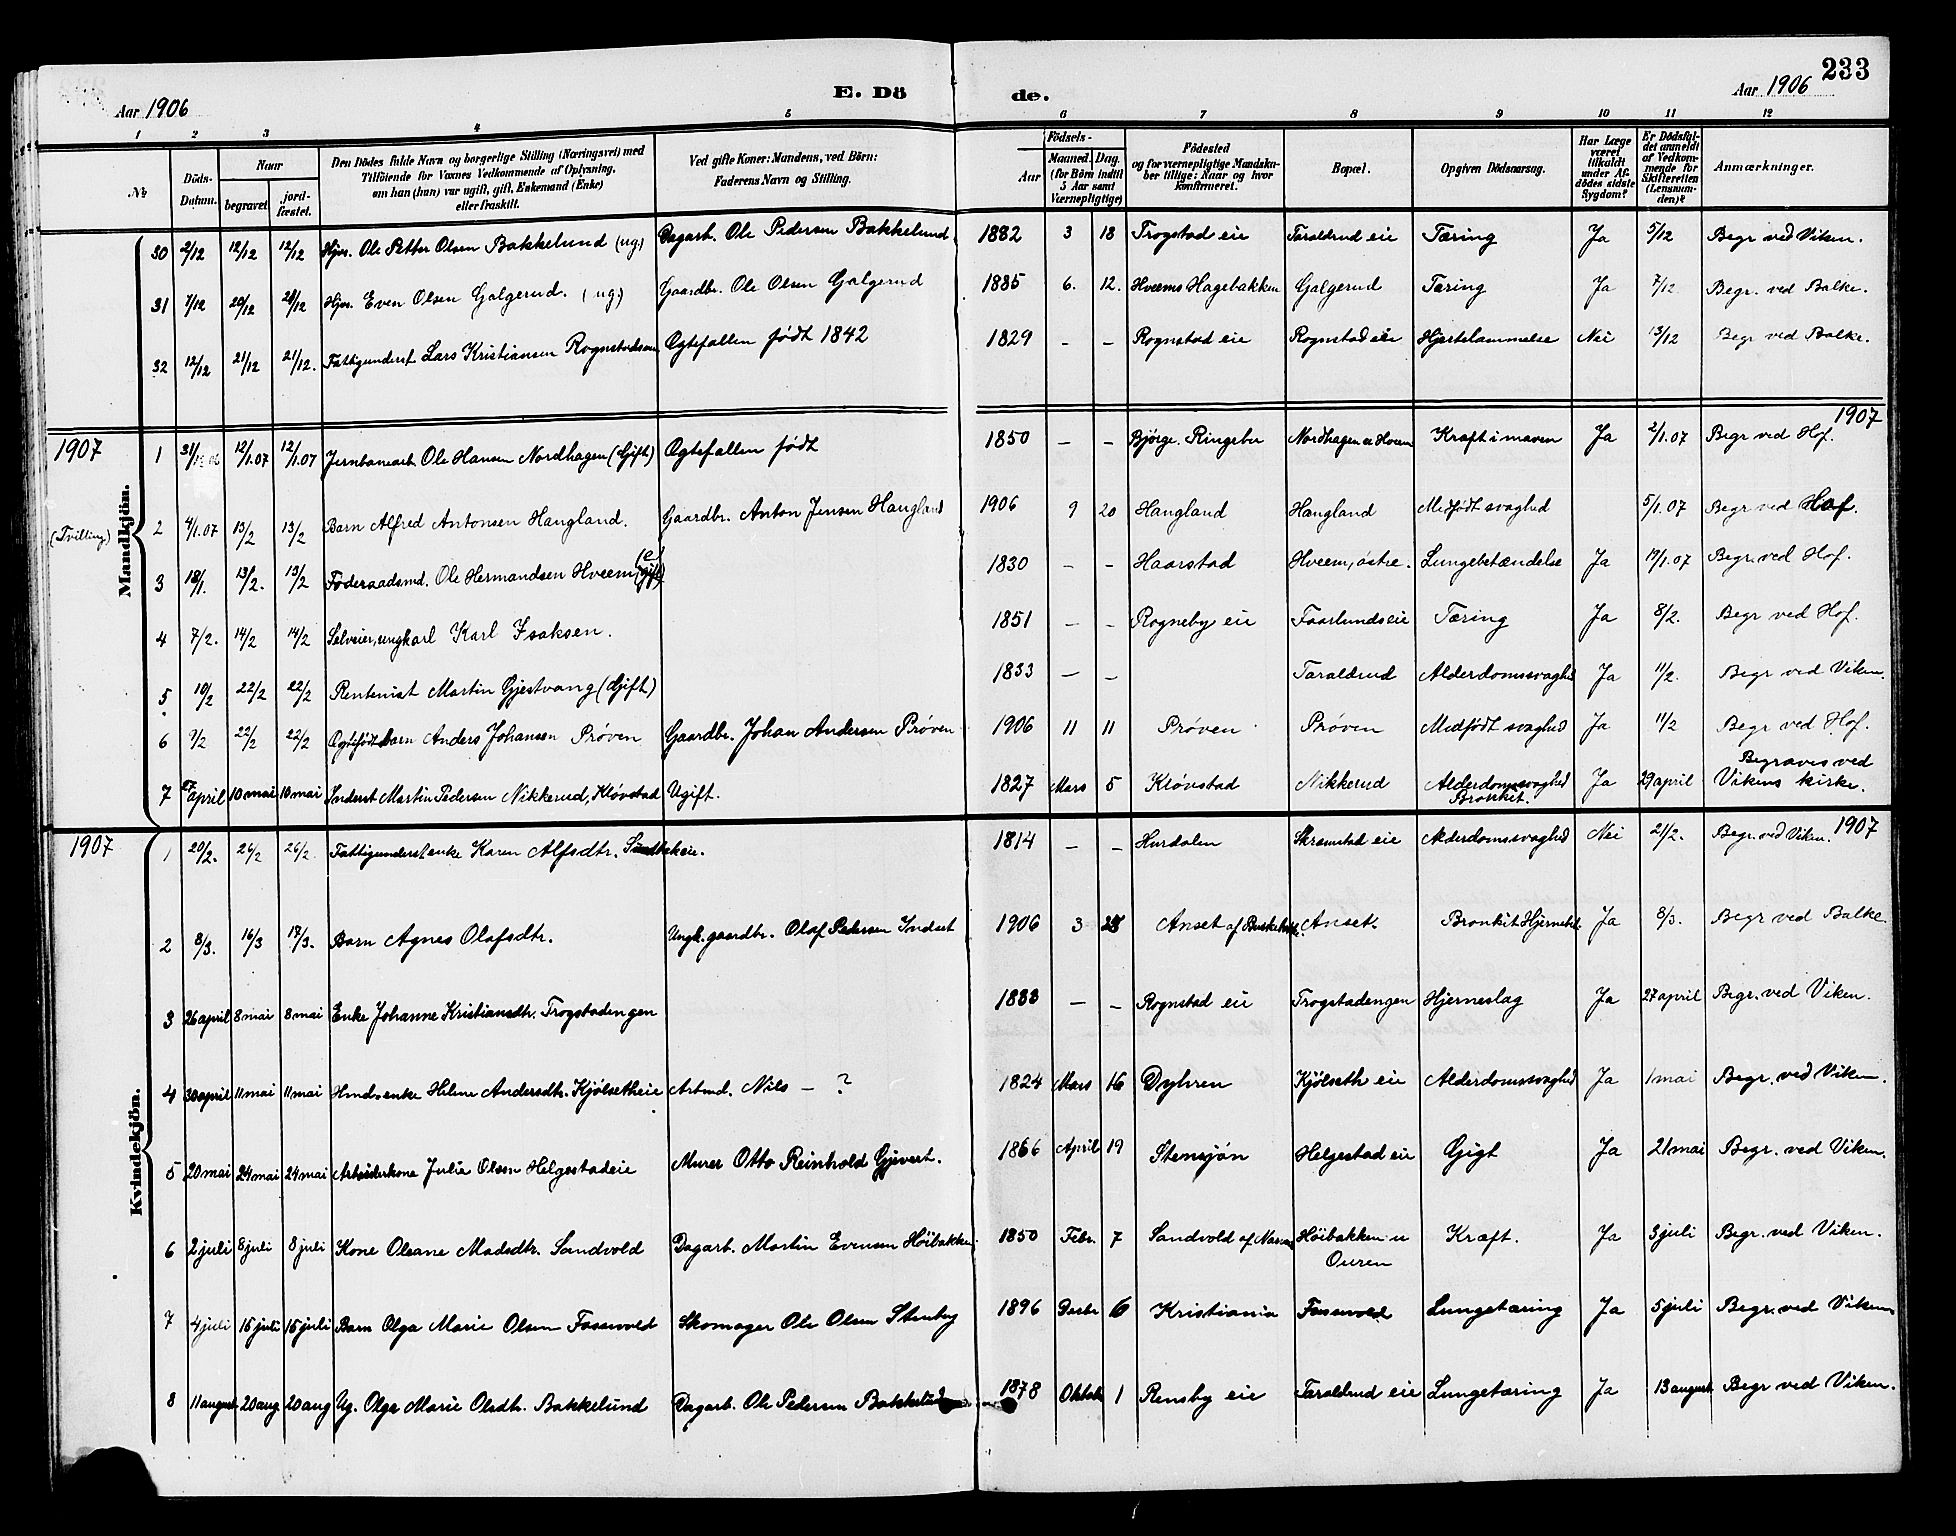 233
Aar 1906 E. Dö de. Aar 1906
1 2 3 4 5 6 7 8 9 10 11 12
№ Döds-Datum. Naar begravet jord-fæstet. Den Dödes fulde Navn og borgerlige Stilling (Næringsvei) med Tilföiende for Voxnes Vedkommende af Oplysning, om han (hun) var ugift, gift, Enkemand (Enke) eller fraskilt. Ved gifte Koner: Mandens, ved Börn: Faderens Navn og Stilling. Födsels- Aar Maaned. Dag. (for Börn indtil 5 Aar samt Værnepligtige) Födested og for værnepligtige Mandska-ber tillige: Naar og hvor konfirmeret. Bopæl. Opgiven Dödsaarsag. Har Læge været tilkaldt under Af-dödes sidste Sygdom? Er Dödsfal-det anmeldt af Vedkom-mende for Skifteretten (Lensman-den)? Anmærkninger.
30 2/12 12/12 12/12 Hjv. Ole Petter Olsen Bakkelund (ug.) Dagarb. Ole Pedersen Bakkelund 1882 3 18 Trogstad eie Taraldrud eie Tæring Ja 5/12 Begr ved Viken.
31 7/12 20/12 20/12 Hjv. Even Olsen Galgerud. (ug.) Gaardbr. Ole Olsen Galgerud 1885 6. 12. Hveems Hagebakken Galgerud Tæring Ja 7/12 Begr. ved Balke.
32 12/12 21/12 21/12. Fattigunderst. Lars Kristiansen Rognstadsen Egtefallen født 1842 1829 – – Rognstad eie Rognstad eie Hjertelammelse Nei 13/12 Begr ved Balke.
1907 1907
Mandkjön.
1 31/12 06 12/1.07 12/1.07 Jernbanearb. Ole Hansen Nordhagen (Gift) Egtefallen født 1850 – – Bjørge. Ringebu Nordhagen u Hveem Kræft i maven Ja 2/1.07 Begr ved Hof.
(Tvilling) 2 4/1.07 13/2 13/2 Barn Alfred Antonsen Haugland. Gaardbr. Anton Jensen Haugland 1906 9 20 Haugland Haugland Medfødt svaghed 5/1.07 Begr ved Hof.
3 18/1. 13/2. 13/2 Føderaadsmd. Ole Hermandsen Hveem (e) (gift) 1830 – – Haarstad Hveem, østre. Lungebetændelse Ja 19/1.07 Begr. ved Hof.
4 7/2. 14/2 14/2 Selveier, ungkarl Karl Isaksen. 1851 – – Rogneby eie Faarlundseie Tæring Ja 8/2. Begr ved Hof.
5 10/2 22/2 22/2 Rentenist Martin Gjestvang (Gift) 1833 – – Taraldrud Alderdomssvaghed Ja 11/2. Begr ved Viken.
6 9/2 22/2 22/2 Egtefødt barn Anders Johansen Prøven Gaardbr. Johan Andersen Prøven 1906 11 11 Prøven Prøven Medfødt svaghed Ja 11/2 Begr ved Hof.
7 27 april 10 mai 10 mai Inderst Martin Pedersen Nikkerud, Kløvstad Ugift. 1827 Mars 5 Kløvstad Nikkerud Alderdomssvaghed Bronkit. Ja 29 april Begraves ved Vikens kirke.
1907 1907
Kvindekjön.
1 20/2. 26/2 26/2. Fattigunderst enke Karen Alfsdtr. 1814 – – Hurdalen Skramstad eie Alderdomssvaghed Nei 21/2. Begr. ved Viken.
2 8/3. 16/3 17/3. Barn Agnes Olafsdtr. Ungk. gaardbr. Olaf Pedersen Indset 1906 3 28 Anset af Anset. Bronkit Ja 8/3. Begr ved Balke
3 26 april 8 mai 8 mai Enke Johanne Kristiansdtr. Trogstadengen 1833 – – Rognstad eie Trogstadengen Hjerneslag Ja 27 april Begr. ved Viken.
4 30 april 11 mai 11 mai enke Helene Andersdtr. Kjølsetheie Arbmd. Nils – ? 1824 Mars 16 Dyhren Kjølseth eie Alderdomssvaghed Ja 1 mai Begr. ved Viken.
5 20 mai 24 mai 24 mai Arbeiderkone Julia Olsen Helgestadeie Murer Otto Reinhold Gjevert. 1866 April 19 Stensjøn Helgestad eie Gigt Ja 21 mai Begr. ved Viken.
6 2 juli 8 juli 8 juli Kone Oleane Madsdtr. Sandvold Dagarb. Martin Evensen Høibakken 1850 Febr. 7 Sandvold af Høibakken u Ouren Kræft. Ja 3 juli Begr. ved Viken.
7 4 juli 16 juli 16 juli Barn Olga Marie Olsen Fossvold Skomager Ole Olsen Stenby 1896 Decbr 6 Kristiania Fossvold Lungetæring Ja 5 juli Begr. ved Viken
8 11 august 20 aug 20 aug Ug. Olga Marie Olsdtr. Bakkelund Dagarb. Ole Pedersen Bakkelund 1878 Oktob 1 Rensby eie Taraldrud eie Lungetæring Ja 13 august Begr ved Viken.